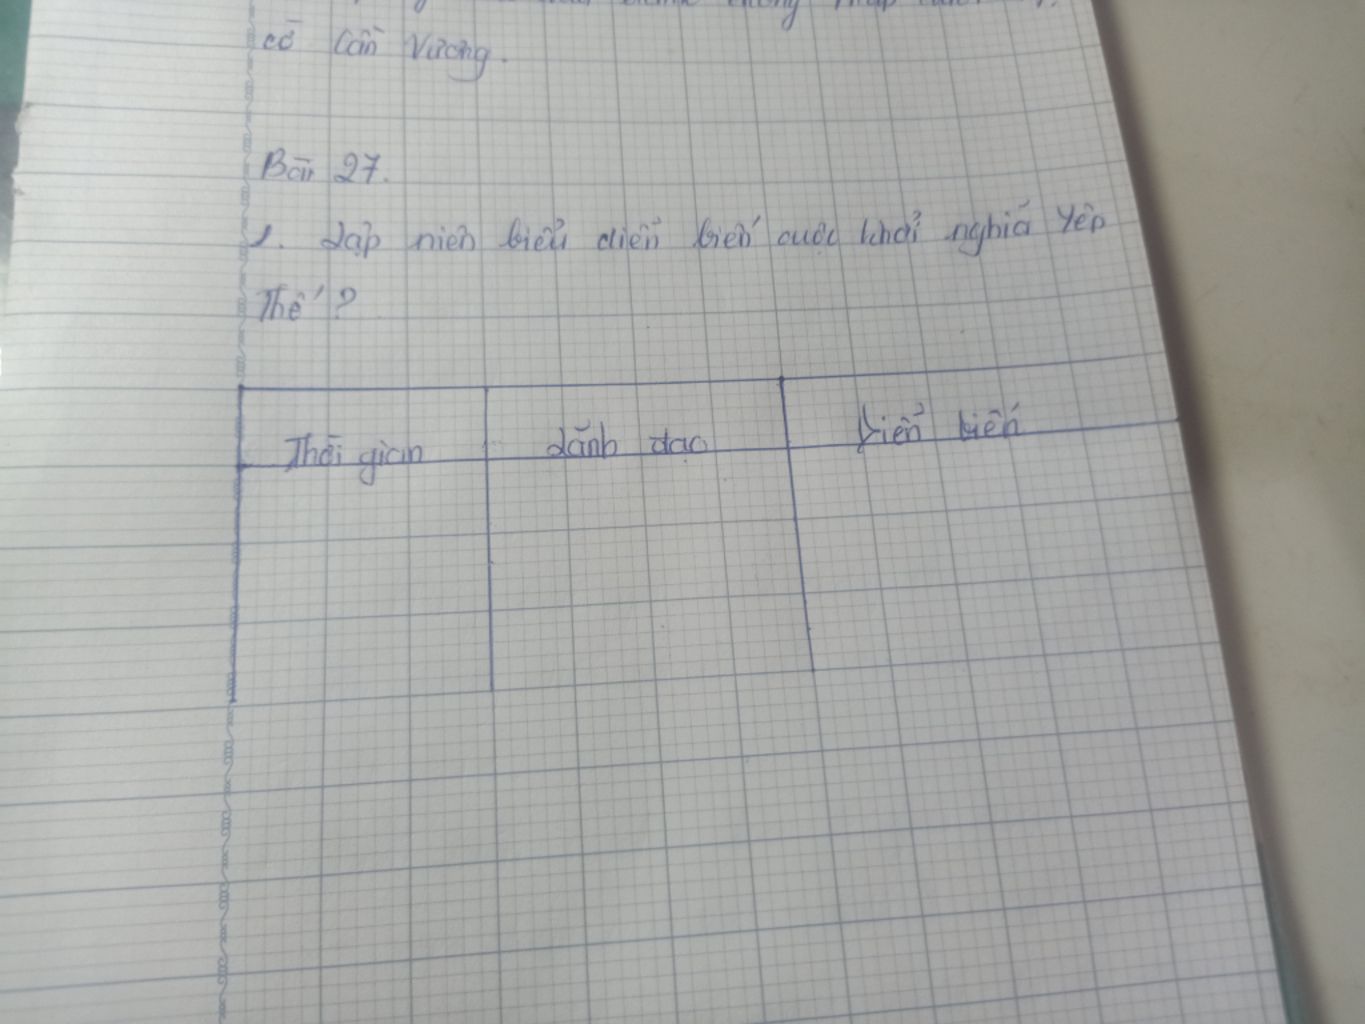 cờ Cần Vương.
Bài 27.
1. Lập niên biểu diễn biến cuộc khởi nghĩa Yên
Thế?
Thời gian
Lãnh đạo
Diễn biến